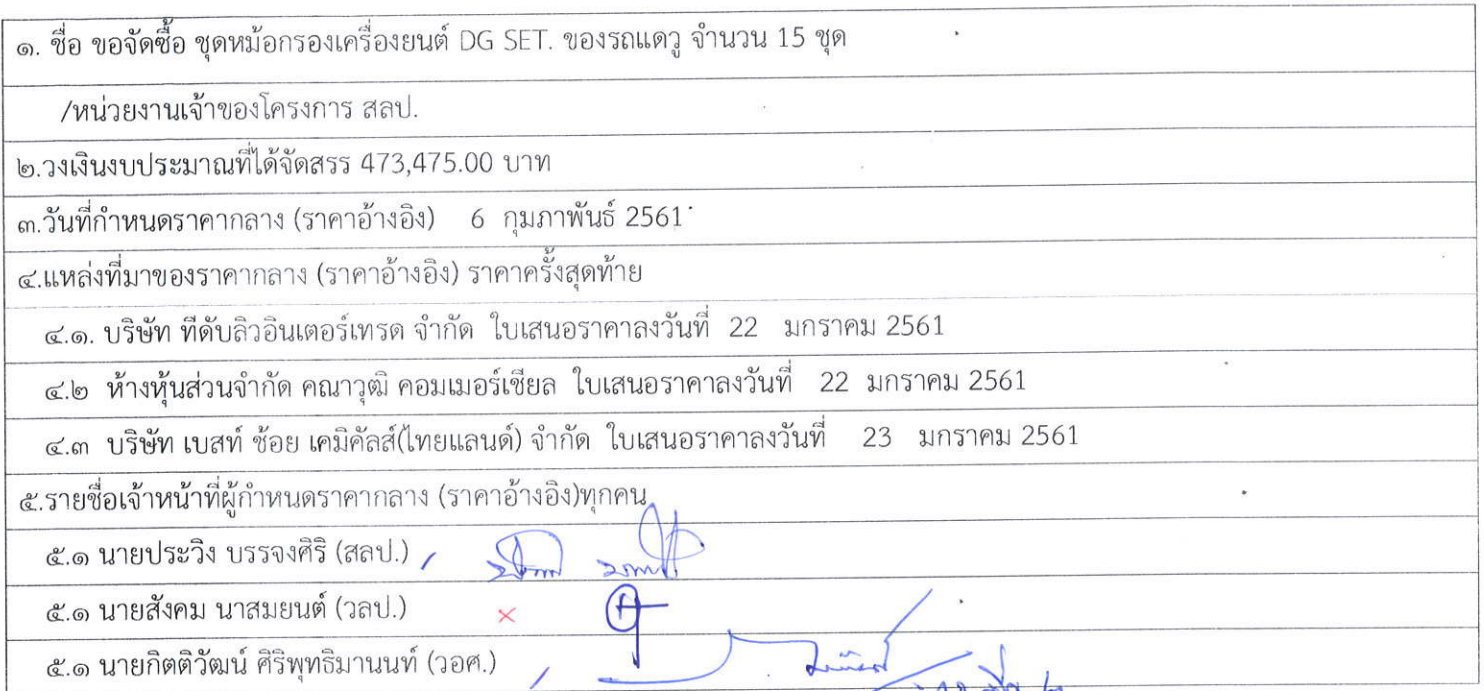 ๑. ชื่อ ขอจัดซื้อ ชุดหม้อกรองเครื่องยนต์ DG SET. ของรถแดวู จำนวน 15 ชุด
/หน่วยงานเจ้าของโครงการ สลป.
๒.วงเงินงบประมาณที่ได้จัดสรร 473,475.00 บาท
๓.วันที่กำหนดราคากลาง (ราคาอ้างอิง) 6 กุมภาพันธ์ 2561
๔.แหล่งที่มาของราคากลาง (ราคาอ้างอิง) ราคาครั้งสุดท้าย
๔.๑. บริษัท ทีดับลิวอินเตอร์เทรด จำกัด ใบเสนอราคาลงวันที่ 22 มกราคม 2561
๔.๒ ห้างหุ้นส่วนจำกัด คณาวุฒิ คอมเมอร์เชียล ใบเสนอราคาลงวันที่ 22 มกราคม 2561
๔.๓ บริษัท เบสท์ ช้อย เคมิคัลส์(ไทยแลนด์) จำกัด ใบเสนอราคาลงวันที่ 23 มกราคม 2561
๕.รายชื่อเจ้าหน้าที่ผู้กำหนดราคากลาง (ราคาอ้างอิง)ทุกคน
๕.๑ นายประวิง บรรจงศิริ (สลป.)
๕.๑ นายสังคม นาสมยนต์ (วลป.)
๕.๑ นายกิตติวัฒน์ ศิริพุทธิมานนท์ (วอศ.)